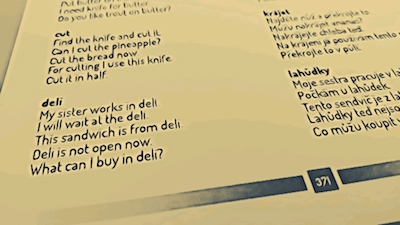 Put butter on
I need knife for butter.
Do you like trout on butter?
cut
Find the knife and cut it.
Can I cut the pineapple?
Cut the bread now.
For cutting I use this knife.
Cut it in half.
deli
My sister works in deli.
I will wait at the deli.
This sandwich is from deli.
Deli is not open now.
What can I buy in deli?
krájet
Najděte nůž a překrojte to.
Můžu nakrájet ananas?
Nakrájejte chleba teď.
Na krájení já používám tento
Překrojte to v půli.
lahůdky
Moje sestra pracuje v
Počkám u lahůdek.
Tento sendvič je z
Lahůdky teď
Co můžu koupit v
371